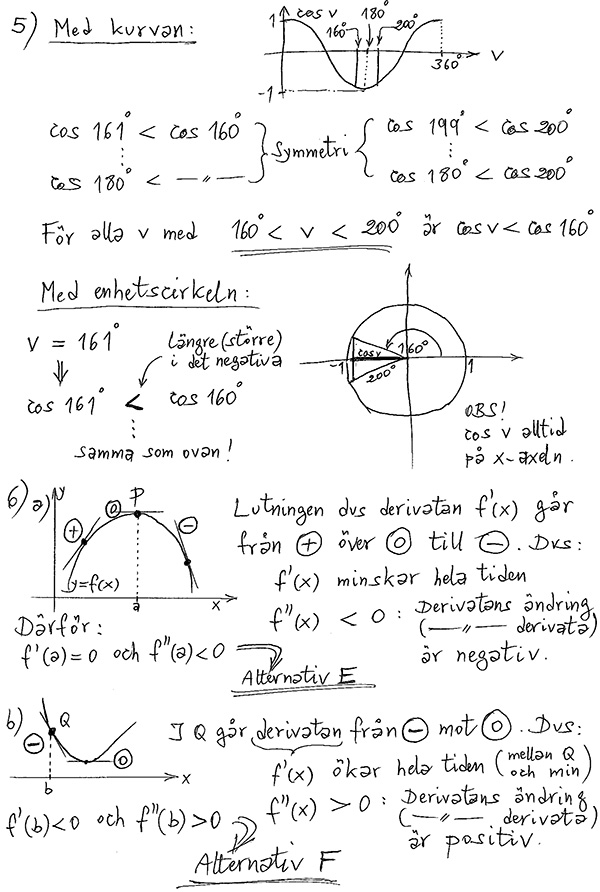 5) Med kurvan:
1 cos v 160° 180° 200°
v
360°
-1
cos 161° < cos 160°
cos 180° < —〃—
Symmetri
cos 199° < cos 200°
cos 180° < cos 200°
För alla v med 160° < v < 200° är cos v < cos 160°
Med enhetscirkeln:
v = 161°
⇓
Längre (större)
i det negativa
cos 161° < cos 160°
samma som ovan!
160°
cos v
-1 1
200°
OBS!
cos v alltid
på x-axeln.
6) a)
y
P
+ 0 −
y=f(x)
a x
Lutningen dvs derivatan f'(x) går
från + över 0 till −. Dvs:
f'(x) minskar hela tiden
f''(x) < 0 : Derivatans ändring
(—〃— derivata)
är negativ.
Därför:
f'(a)=0 och f''(a)<0
Alternativ E
b)
Q
− 0
b x
I Q går derivatan från − mot 0. Dvs:
f'(x) ökar hela tiden (mellan Q
och min)
f''(x) > 0 : Derivatans ändring
(—〃— derivata)
är positiv.
f'(b)<0 och f''(b)>0
Alternativ F